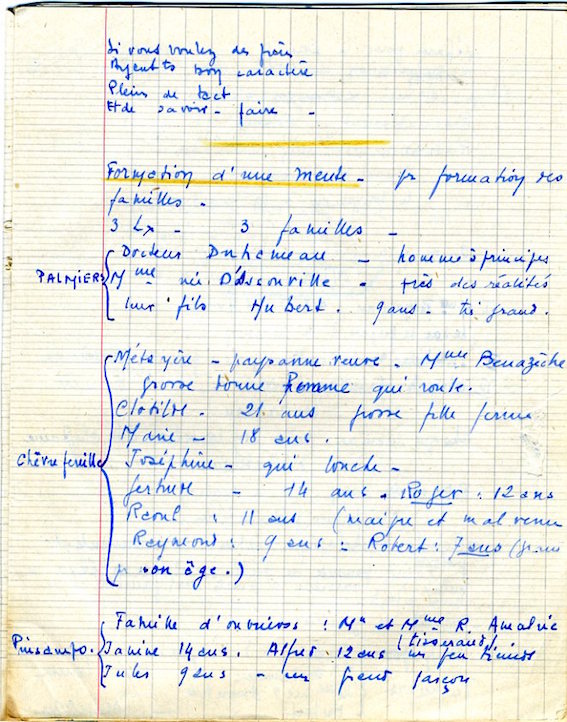 Si vous voulez des
Ayant ts bon caractère
Pleins de tact
Et de savoir-faire -
Formation d'une meute - pr formation des
familles -
3 Lx - 3 familles -
Docteur Duhameau - homme à principes
PALMIERS Mme née D'Issonville - très des réalités
leur fils Hubert. 9 ans - tr grand.
Métayère - paysanne veuve - Mme Benazèche
grosse bonne femme qui roule.
Clotilde - 21 ans grosse fille ferme
Marie - 18 ans.
Chèvrefeuille Joséphine - qui louche -
Gertrude - 14 ans. Roger : 12 ans
Raoul : 11 ans (maigre et mal venu
Raymond : 9 ans : Robert : 7 ans (grand
pr son âge.)
Famille d'ouvriers : Mr et Mme R. Amalric
(tisserands)
Janine 14 ans. Alfred 12 ans un peu timide
Jules 9 ans - un grand garçon